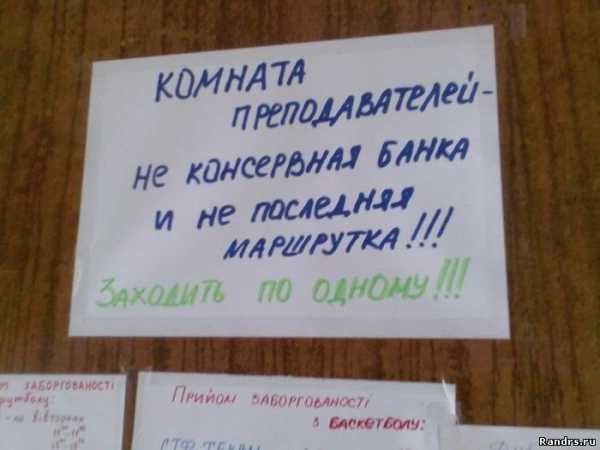 КОМНАТА
ПРЕПОДАВАТЕЛЕЙ-
НЕ КОНСЕРВНАЯ БАНКА
И НЕ ПОСЛЕДНЯЯ
МАРШРУТКА!!!
ЗАХОДИТЬ ПО ОДНОМУ!!!
ЗАБОРГОВАНОСТІ
футболу:
- по вівторках
ПРИЙОМ ЗАБОРГОВАНОСТІ
З БАСКЕТБОЛУ:
Randrs.ru